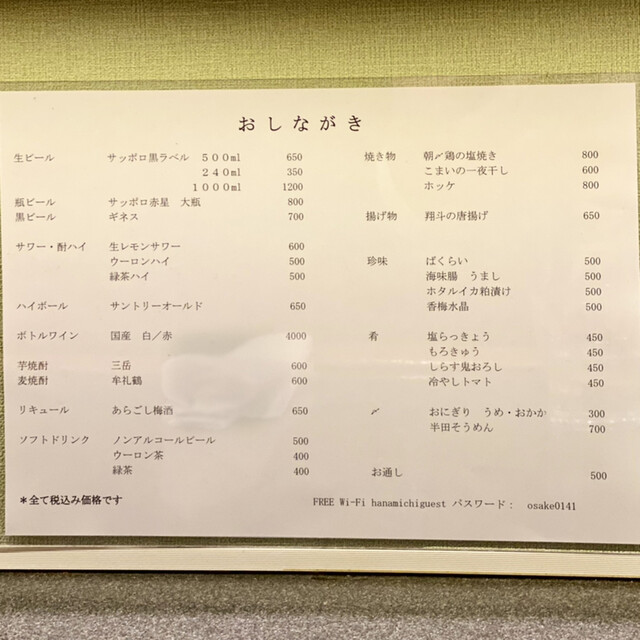 おしながき
生ビール サッポロ黒ラベル 500ml 650
240ml 350
1000ml 1200
瓶ビール サッポロ赤星 大瓶 800
黒ビール ギネス 700
サワー・酎ハイ 生レモンサワー 600
ウーロンハイ 500
緑茶ハイ 500
ハイボール サントリーオールド 650
ボトルワイン 国産 白／赤 4000
芋焼酎 三岳 600
麦焼酎 牟礼鶴 600
リキュール あらごし梅酒 650
ソフトドリンク ノンアルコールビール 500
ウーロン茶 400
緑茶 400
＊全て税込み価格です
焼き物 朝〆鶏の塩焼き 800
こまいの一夜干し 600
ホッケ 800
揚げ物 翔斗の唐揚げ 650
珍味 ばくらい 500
海味腸 うまし 500
ホタルイカ粕漬け 500
香梅水晶 500
肴 塩らっきょう 450
もろきゅう 450
しらす鬼おろし 450
冷やしトマト 450
〆 おにぎり うめ・おかか 300
半田そうめん 700
お通し 500
FREE Wi-Fi hanamichiguest パスワード： osake0141